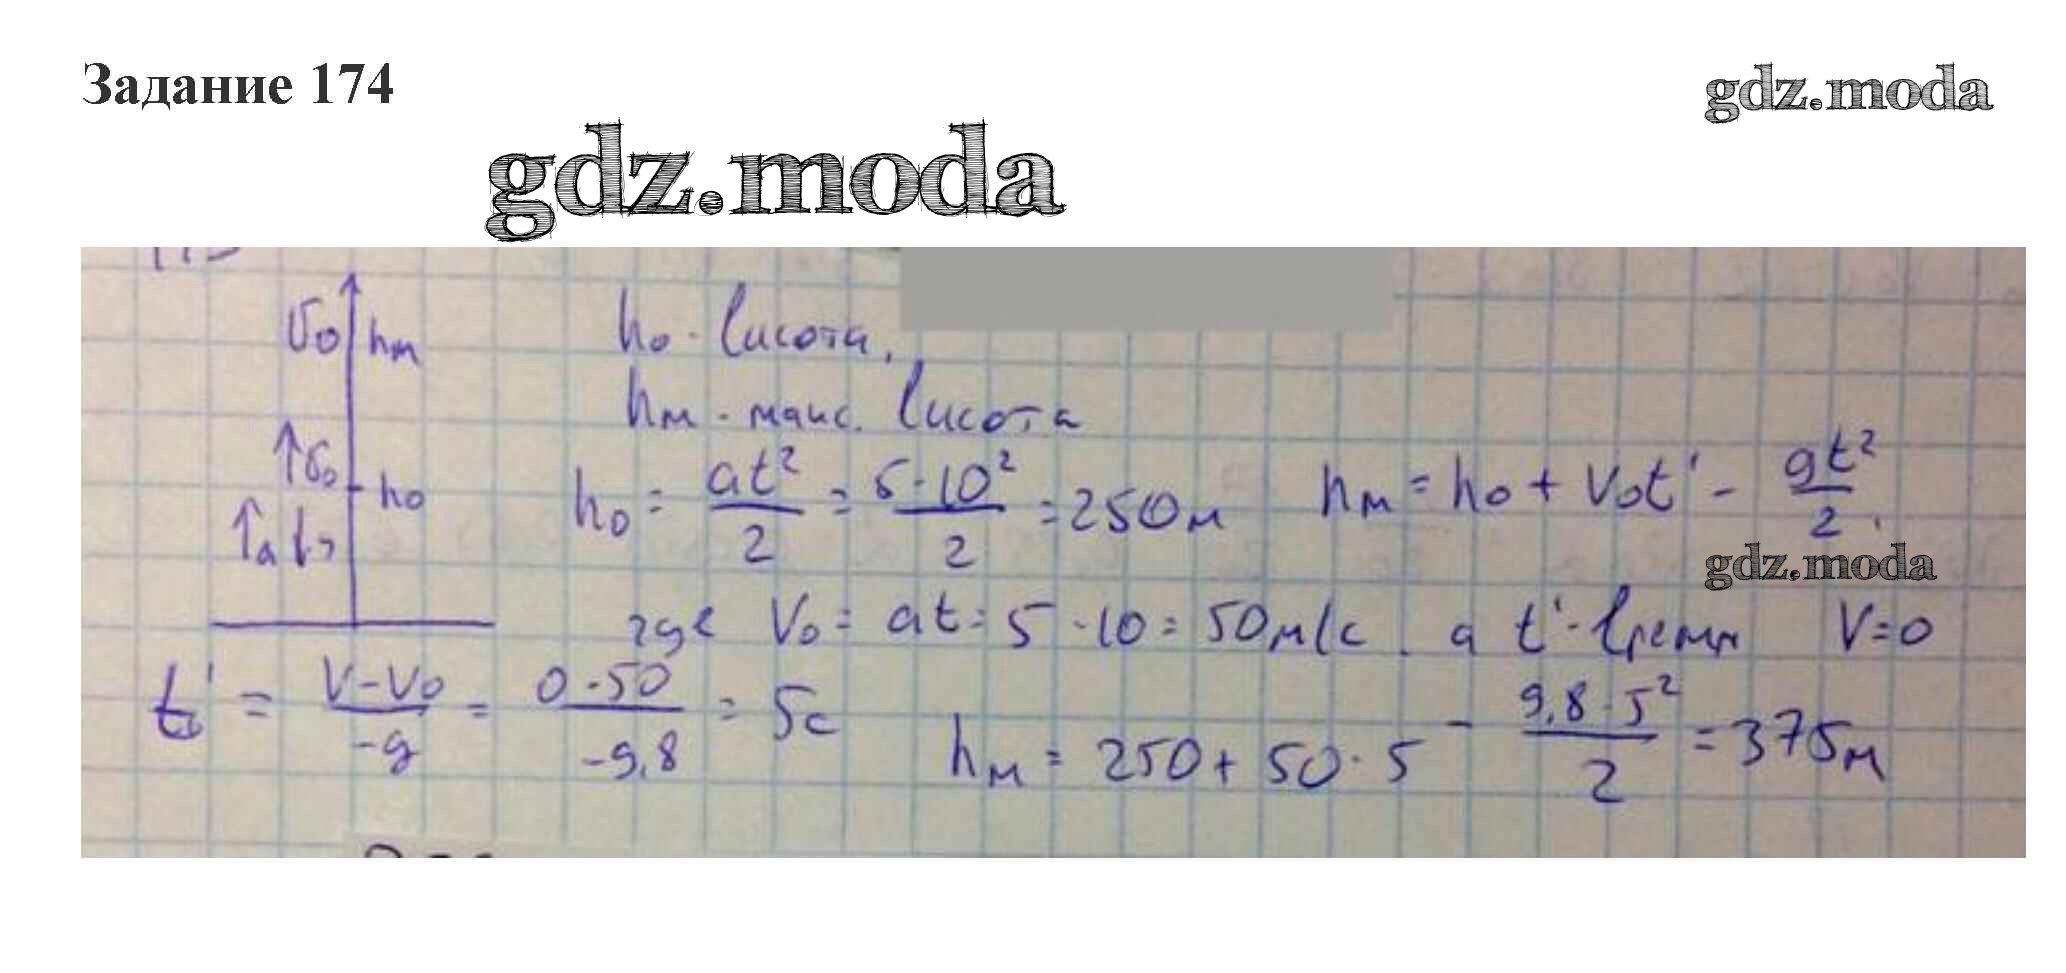 Задание 174
gdz.moda
gdz.moda
V₀ hм
h₀ - висота,
hм - макс. висота
↑v₀ h₀
↑a
h₀ = at²/2 = 5·10²/2 = 250м hм = h₀ + V₀t' - gt²/2,
gdz.moda
где V₀ = at = 5·10 = 50м/с, а t' - время V=0
t' = V-V₀/-g = 0-50/-9,8 = 5с hм = 250 + 50·5 - 9,8·5²/2 = 375м